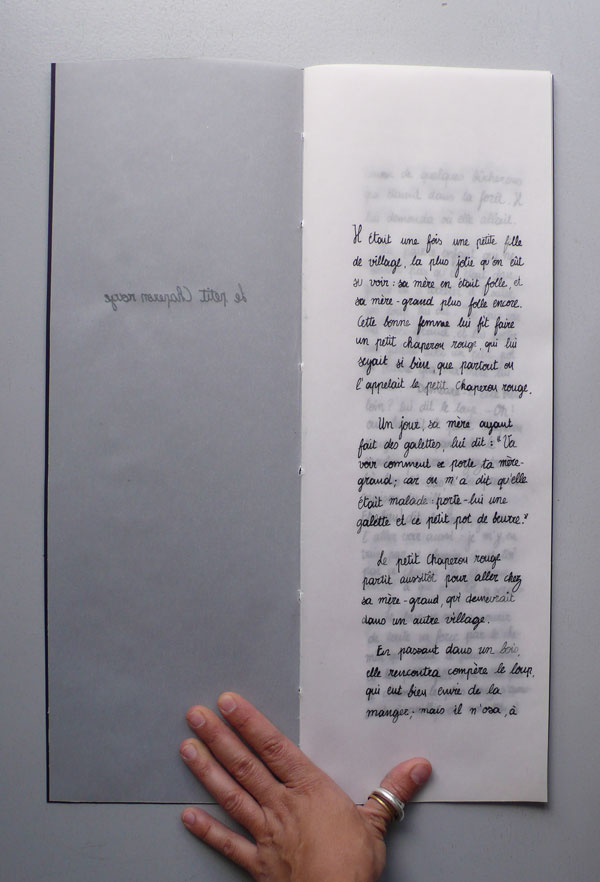 Le petit Chaperon rouge
cause de quelques bûcherons
qui étaient dans la forêt. Il
lui demanda où elle allait.
Il était une fois une petite fille
de village, la plus jolie qu'on eût
su voir : sa mère en était folle, et
sa mère-grand plus folle encore.
Cette bonne femme lui fit faire
un petit chaperon rouge, qui lui
seyait si bien, que partout on
l'appelait le petit Chaperon rouge.
Un jour, sa mère ayant
fait des galettes, lui dit : "Va
voir comment se porte ta mère-
grand ; car on m'a dit qu'elle
était malade : porte-lui une
galette et ce petit pot de beurre."
Le petit Chaperon rouge
partit aussitôt pour aller chez
sa mère-grand, qui demeurait
dans un autre village.
En passant dans un bois,
elle rencontra compère le loup,
qui eut bien envie de la
manger ; mais il n'osa, à